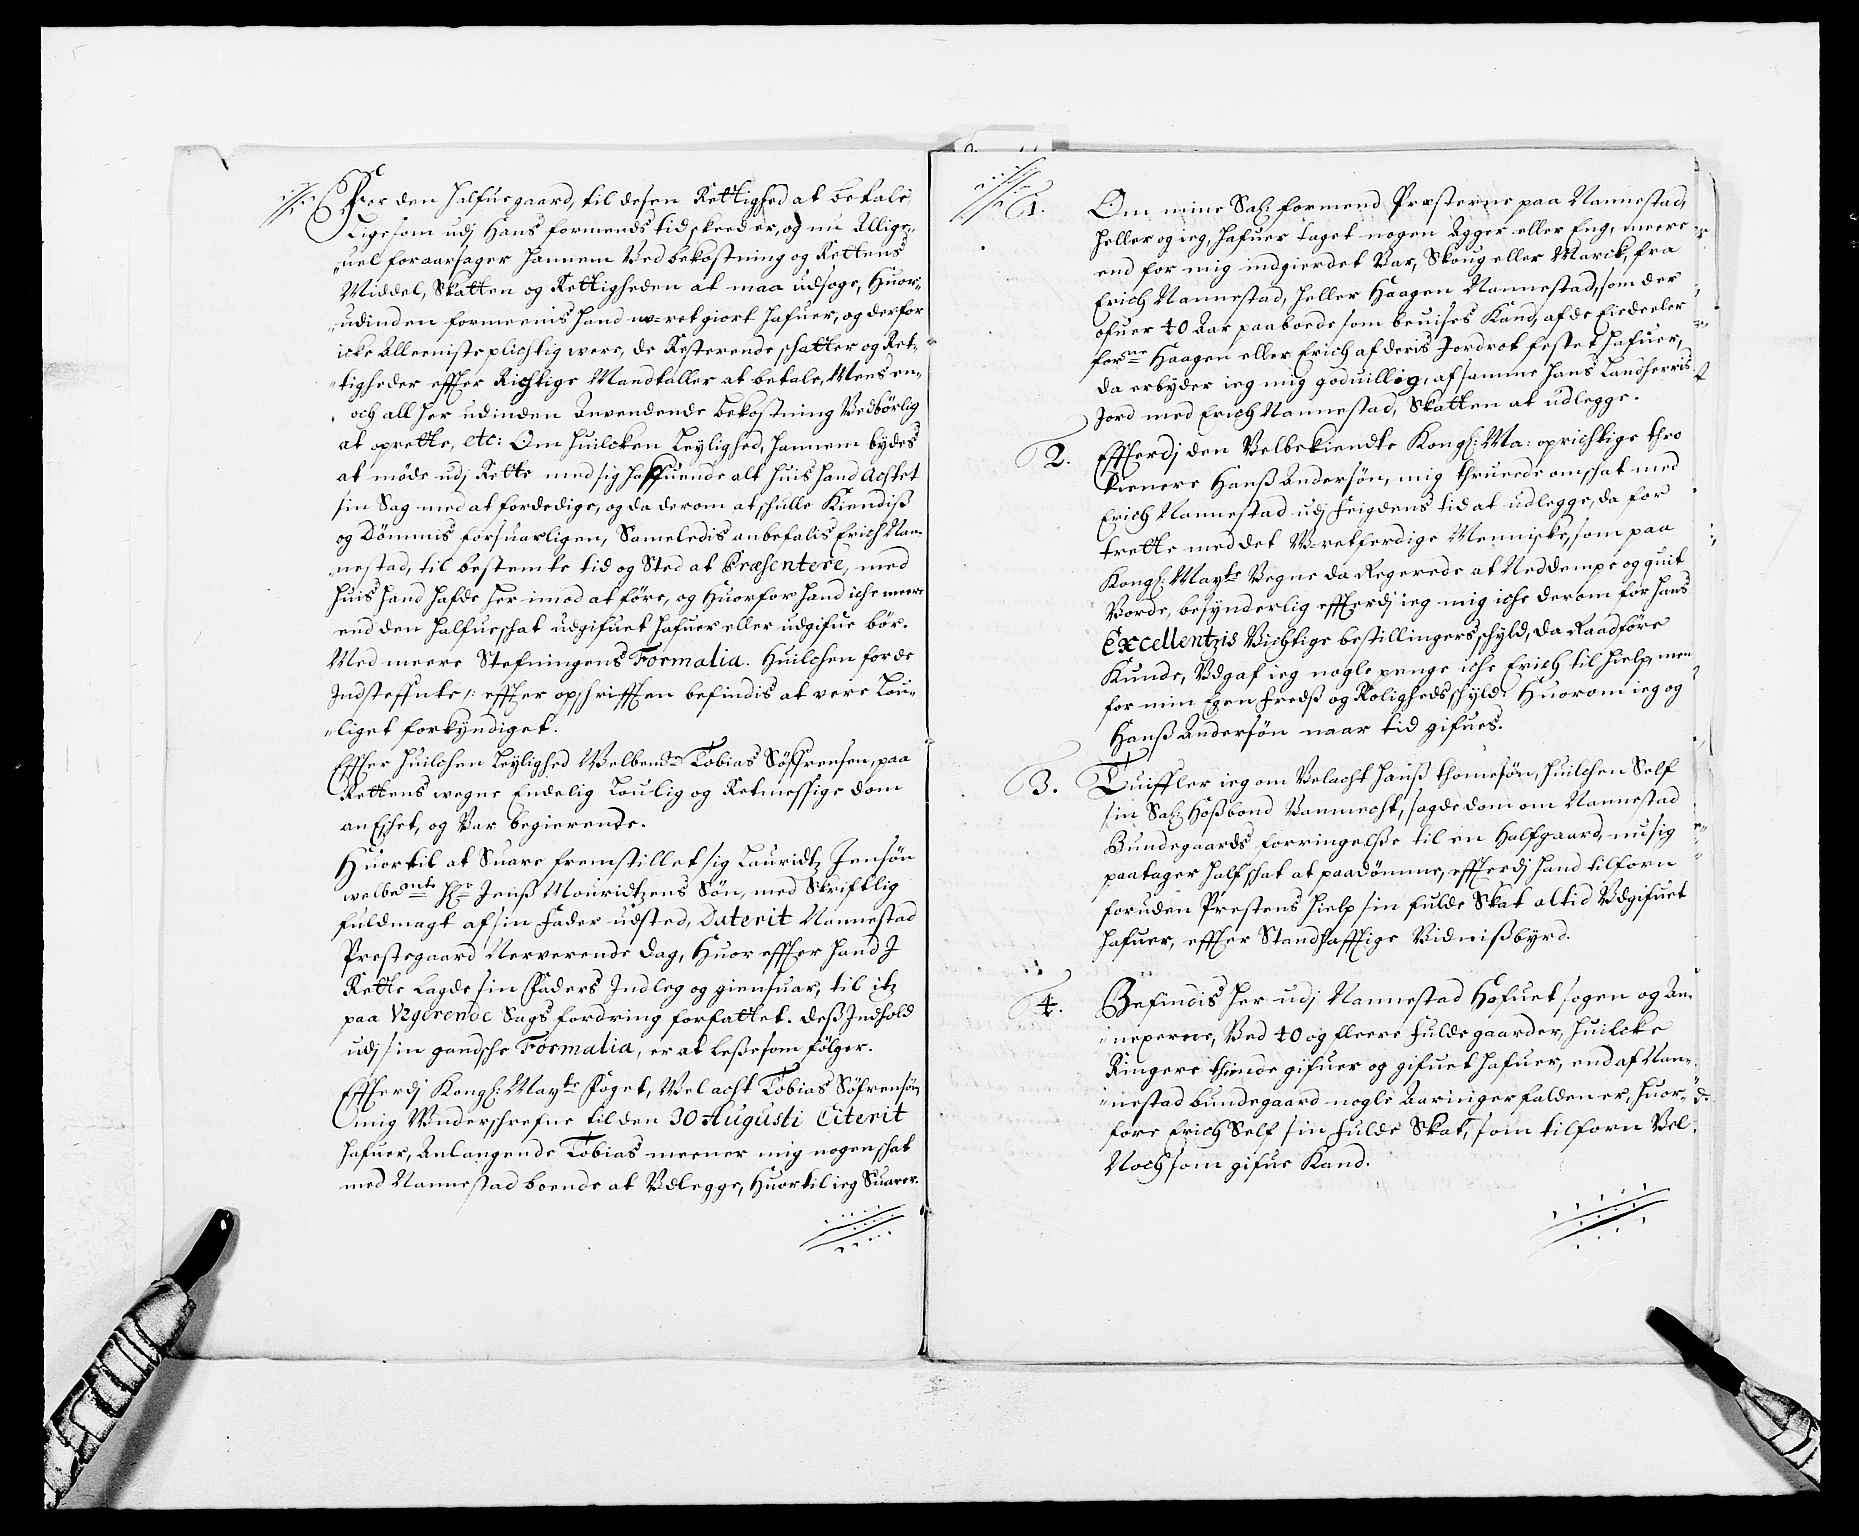 For den halfue gaard, til desen Rettighed at betale,
Ligesom udj Hans formends tid skeed er, og nu Allige-
-uel foraarsager hannem Ved bekostning og Rettens
Middel, Skatten og Rettigheden at maa udsøge, Huor-
-udinden formeenis hand w-ret giort hafuer, og derfor
icke Alleeniste plichtig were, de Resterende schatter og Ret-
-tigheder effter Richtige Mandtaller at betale, Mens en-
och all her udinden Anvendende bekostning Vedbörlig
at oprette, etc: Om huilcken Leylighed, hannem bydes
at møde udj Rette med sig haffuende alt huis hand Achtet
sin Sag med at fordedige, og da derom at schulle Kiendiß
og Dömmis forsuarligen, Sameledis anbefalis Erich Nan-
-nestad, til bestemte tid og Sted at Præsentere, med
huis hand hafde her imod at före, og Huorfor hand iche meere
end den halfue schat udgifuet hafuer eller udgifue bör.
Med meere Stefningens Formalia. Huilchen forde
Indsteffnte, :/ effter opschrifften befindis at vere Lou-
-liget forkyndiget.
Effter huilchen Leylighed Welbemde Tobias Söffrensen, paa
Rettens wegne Endelig Loulig og Retmessige dom
an Eschet, og Var begierende.
Huortil at Suare fremstillet sig Lauridtz Jensön
welbemte Hr Jenß Mouridtzens Sön, med Skriftlig
fuldmagt af sin Fader udsted, Daterit Nannestad
Prestegaard Nerverende dag, Huor effter hand J
Rette Lagde sin Faders Indleg og giensuar, til itz
paa Vgerende Sags fordring forfattet. deß Indhold
udj sin gandsche Formalia, er at Leße som fölger.
Effterdj Kongl: Mayts Foget, Vel acht Tobias Söfrensön
mig Vnderschrefne til den 30 Augusti Citerit
hafuer, Anlangende Tobias meener mig nogen schat
med Nannestad boende at Vdlegge, Huortil ieg Suarer.
1. Om mine Sal: formend Præsterne paa Nannestad,
heller og ieg, hafuer taget nogen Agger eller Eng, meere
end for mig indgierdet Var, Skoug eller Marck, fra
Erich Nannestad, heller Haagen Nannestad, som der
ofuer 40 Aar paaboede som beuises Kand, af de Eiedeeler
forne Haagen eller Erich af deris Jordrot festet hafuer,
da erbyder ieg mig goduillig, af samme Hans Landherris
Jord med Erich Nannestad, Skatten at udlegge.
2. Effterdj den Velbekiendte Kongl: Ma: oprichtige thro
tienere Hanß Andersön, mig thruede om schat med
Erich Nannestad udj Feigdens tid at udlegge, da for
trette med det V-retferdige Menniske, som paa
Kongl: Mayts Vegne da Regerede at Neddempe og quit
Vorde, besynderlig effterdj ieg mig iche derom for hans
Excellentzis Vichtige bestillingers schyld, da Raadföre
Kunde, Vdgaf ieg nogle penge iche Erich til hielp, men
for min Egen Fredß og Roligheds schyld. Huorom ieg og
Hanß Andersön naar tid gifues.
3. Tuiffler ieg om Velacht Hanß Thomesön, huilchen Self
sin Sal: Hoßbond Vanmecht, sagde dom om Nannestad
Bundegaards forringelße til en Halfgaard, nu sig
paatager half schat at paadömme, effterdj hand tilforn
foruden Prestens hielp sin fulde Skat altid Vdgifuet
hafuer, effter Standhafftige Vidnißbyrd.
4. Befindis her udj Nannestad Hofuet sogen og An-
-nexerne, Ved 40 og fleere Fulde gaarder, huilcke
Ringere thiende gifuer og gifuet hafuer, end af Nan-
-nestad bundegaard nogle Aaringer falden er, huor-
fore Erich Self sin fulde Skat, som tilforn Vel
Noch som gifue Kand.